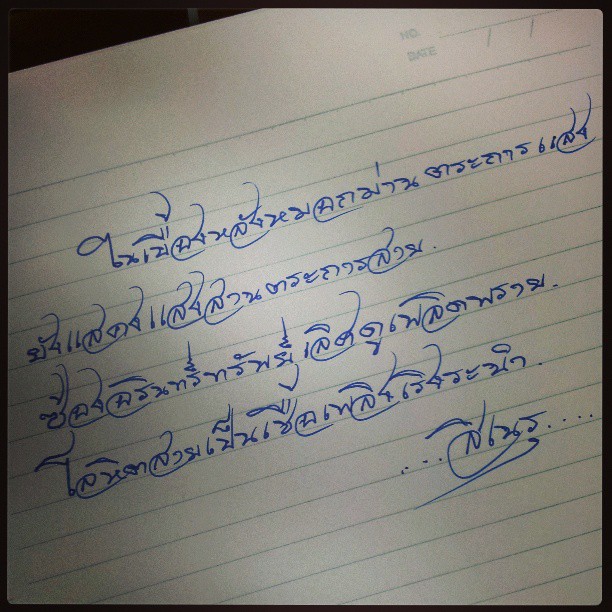 NO.
DATE / /
ในเบื้องหลังหมอกม่านตระการแสง
ยังแสดงแสงสานตระการสาย.
ซ้องอรินทรีทรัพย์เลิศดูเพลิดพราย.
โลหิตสายเป็นเชื้อเพลิงเริงระบำ.
...สิเนรุ....